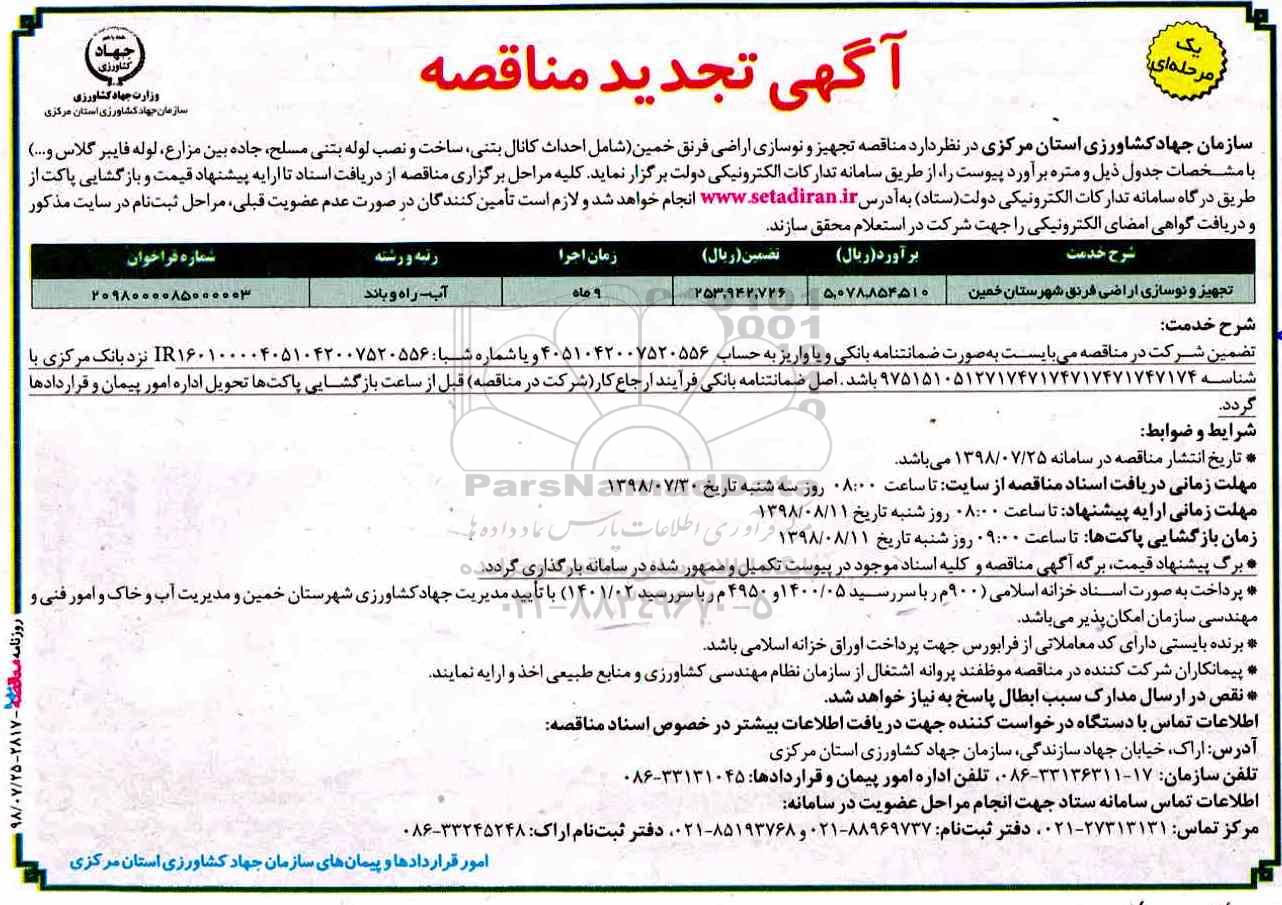 یک
مرحله‌ای
آگهی تجدید مناقصه
جهاد
کشاورزی
وزارت جهاد کشاورزی
سازمان جهاد کشاورزی استان مرکزی
سازمان جهاد کشاورزی استان مرکزی در نظر دارد مناقصه تجهیز و نوسازی اراضی فرنق خمین(شامل احداث کانال بتنی، ساخت و نصب لوله بتنی مسلح، جاده بین مزارع، لوله فایبر گلاس و...)
با مشخصات جدول ذیل و متره برآورد پیوست را، از طریق سامانه تدارکات الکترونیکی دولت برگزار نماید. کلیه مراحل برگزاری مناقصه از دریافت اسناد تا ارایه پیشنهاد قیمت و بازگشایی پاکت از
طریق درگاه سامانه تدارکات الکترونیکی دولت(ستاد) به‌آدرس www.setadiran.ir انجام خواهد شد و لازم است تأمین‌کنندگان در صورت عدم عضویت قبلی، مراحل ثبت‌نام در سایت مذکور
و دریافت گواهی امضای الکترونیکی را جهت شرکت در استعلام محقق سازند.
شرح خدمت برآورد(ریال) تضمین(ریال) زمان اجرا رتبه و رشته شماره فراخوان
تجهیز و نوسازی اراضی فرنق شهرستان خمین ۵,۰۷۸,۸۵۴,۵۱۰ ۲۵۳,۹۴۲,۷۲۶ ۹ ماه آب-راه و باند ۲۰۹۸۰۰۰۰۸۵۰۰۰۰۰۳
شرح خدمت:
تضمین شرکت در مناقصه می‌بایست به‌صورت ضمانتنامه بانکی و یا واریز به حساب ۴۰۵۱۰۴۲۰۰۷۵۲۰۵۵۶ و یا شماره شبا: IR۱۶۰۱۰۰۰۰۴۰۵۱۰۴۲۰۰۷۵۲۰۵۵۶ نزد بانک مرکزی با
شناسه ۹۷۵۱۵۱۰۵۱۲۷۱۷۴۷۱۷۴۷۱۷۴۷۱۷۴۷۱۷۴ باشد. اصل ضمانتنامه بانکی فرآیند ارجاع کار(شرکت در مناقصه) قبل از ساعت بازگشایی پاکت‌ها تحویل اداره امور پیمان و قراردادها
گردد.
شرایط و ضوابط:
* تاریخ انتشار مناقصه در سامانه ۱۳۹۸/۰۷/۲۵ می‌باشد.
مهلت زمانی دریافت اسناد مناقصه از سایت: تا ساعت ۰۸:۰۰ روز سه شنبه تاریخ ۱۳۹۸/۰۷/۳۰
مهلت زمانی ارایه پیشنهاد: تا ساعت ۰۸:۰۰ روز شنبه تاریخ ۱۳۹۸/۰۸/۱۱
زمان بازگشایی پاکت‌ها: تا ساعت ۰۹:۰۰ روز شنبه تاریخ ۱۳۹۸/۰۸/۱۱
* برگ پیشنهاد قیمت، برگه آگهی مناقصه و کلیه اسناد موجود در پیوست تکمیل و ممهور شده در سامانه بارگذاری گردد.
* پرداخت به صورت اسناد خزانه اسلامی (۹۰۰م ر با سررسید ۱۴۰۰/۰۵ و ۴۹۵۰ م ر با سررسید ۱۴۰۱/۰۲) با تأیید مدیریت جهاد کشاورزی شهرستان خمین و مدیریت آب و خاک و امور فنی و
مهندسی سازمان امکان‌پذیر می‌باشد.
* برنده بایستی دارای کد معاملاتی از فرابورس جهت پرداخت اوراق خزانه اسلامی باشد.
* پیمانکاران شرکت کننده در مناقصه موظفند پروانه اشتغال از سازمان نظام مهندسی کشاورزی و منابع طبیعی اخذ و ارایه نمایند.
* نقص در ارسال مدارک سبب ابطال پاسخ به نیاز خواهد شد.
اطلاعات تماس با دستگاه درخواست کننده جهت دریافت اطلاعات بیشتر در خصوص اسناد مناقصه:
آدرس: اراک، خیابان جهاد سازندگی، سازمان جهاد کشاورزی استان مرکزی
تلفن سازمان: ۱۷-۰۸۶-۳۳۱۳۶۳۱۱، تلفن اداره امور پیمان و قراردادها: ۰۸۶-۳۳۱۳۱۰۴۵
اطلاعات تماس سامانه ستاد جهت انجام مراحل عضویت در سامانه:
مرکز تماس: ۰۲۱-۲۷۳۱۳۱۳۱، دفتر ثبت‌نام: ۰۲۱-۸۸۹۶۹۷۳۷ و ۰۲۱-۸۵۱۹۳۷۶۸، دفتر ثبت‌نام اراک: ۰۸۶-۳۳۲۴۵۲۴۸
امور قراردادها و پیمان‌های سازمان جهاد کشاورزی استان مرکزی
روزنامه مناقصه - ۲۸۱۷-۹۸/۰۷/۲۵
ParsNamadData
۰۲۱-۸۸۳۴۹۶۷۰-۵